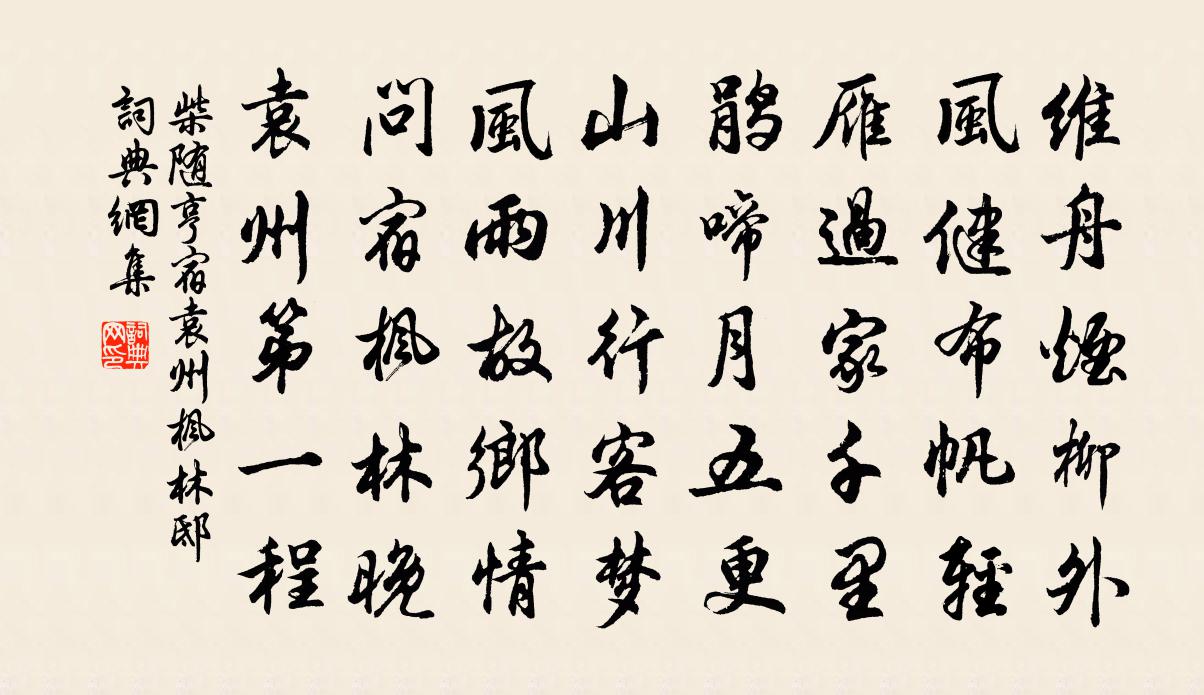 維舟煙柳外
風健布帆輕
雁過家千里
鵑啼月五更
山川行客梦
風雨故鄉情
問宿楓林晚
袁州第一程
柴随亨宿袁州楓林邸
詞典網集
詞典网印